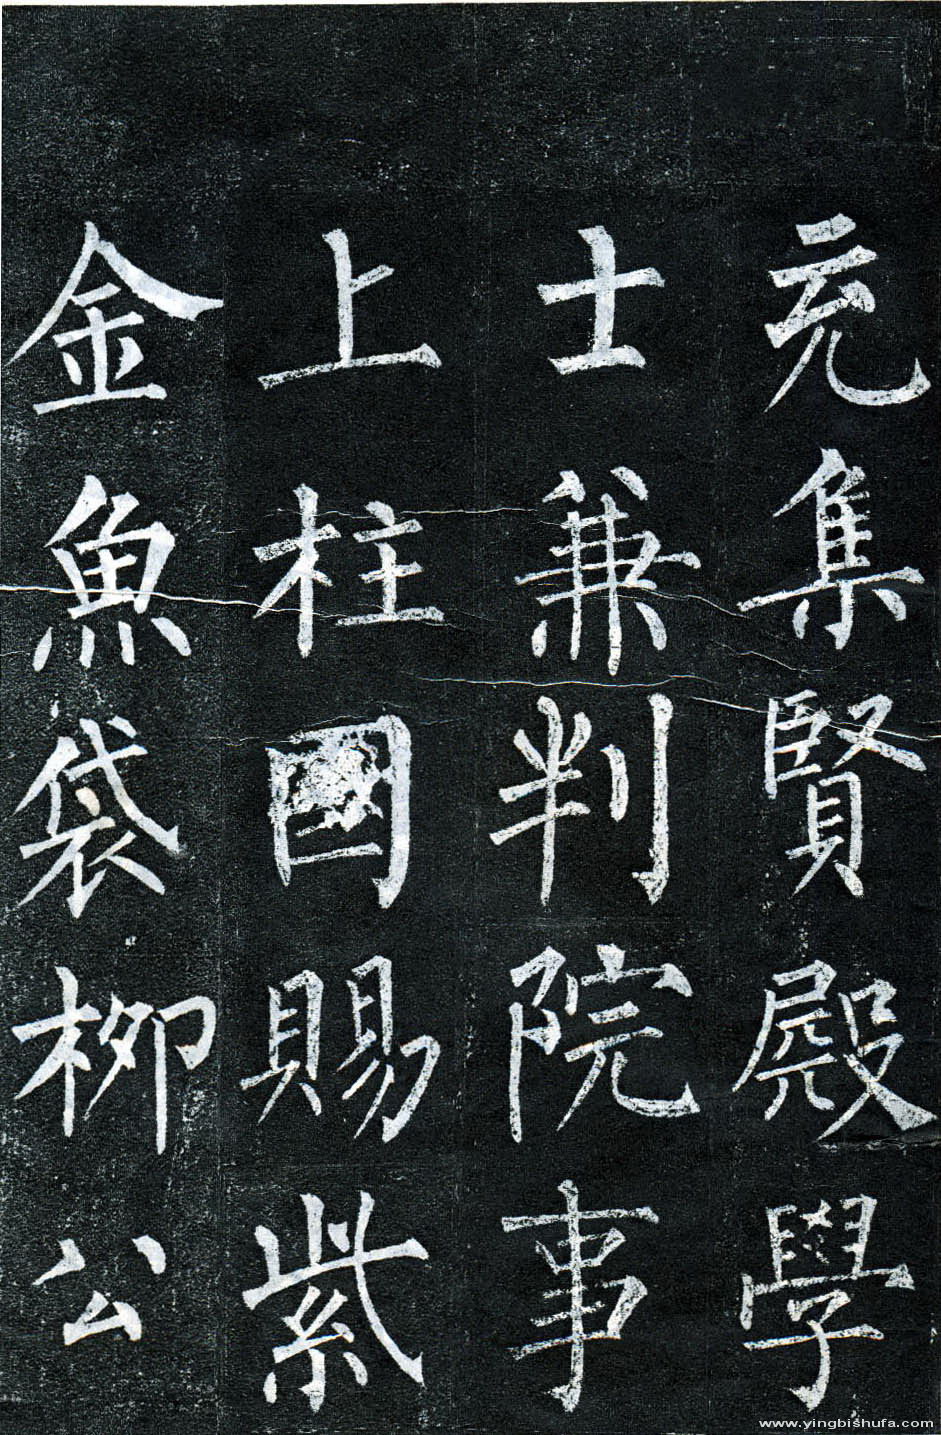 充集賢殿學
士兼判院事
上柱國賜紫
金魚袋柳公
www.yingbishufa.com